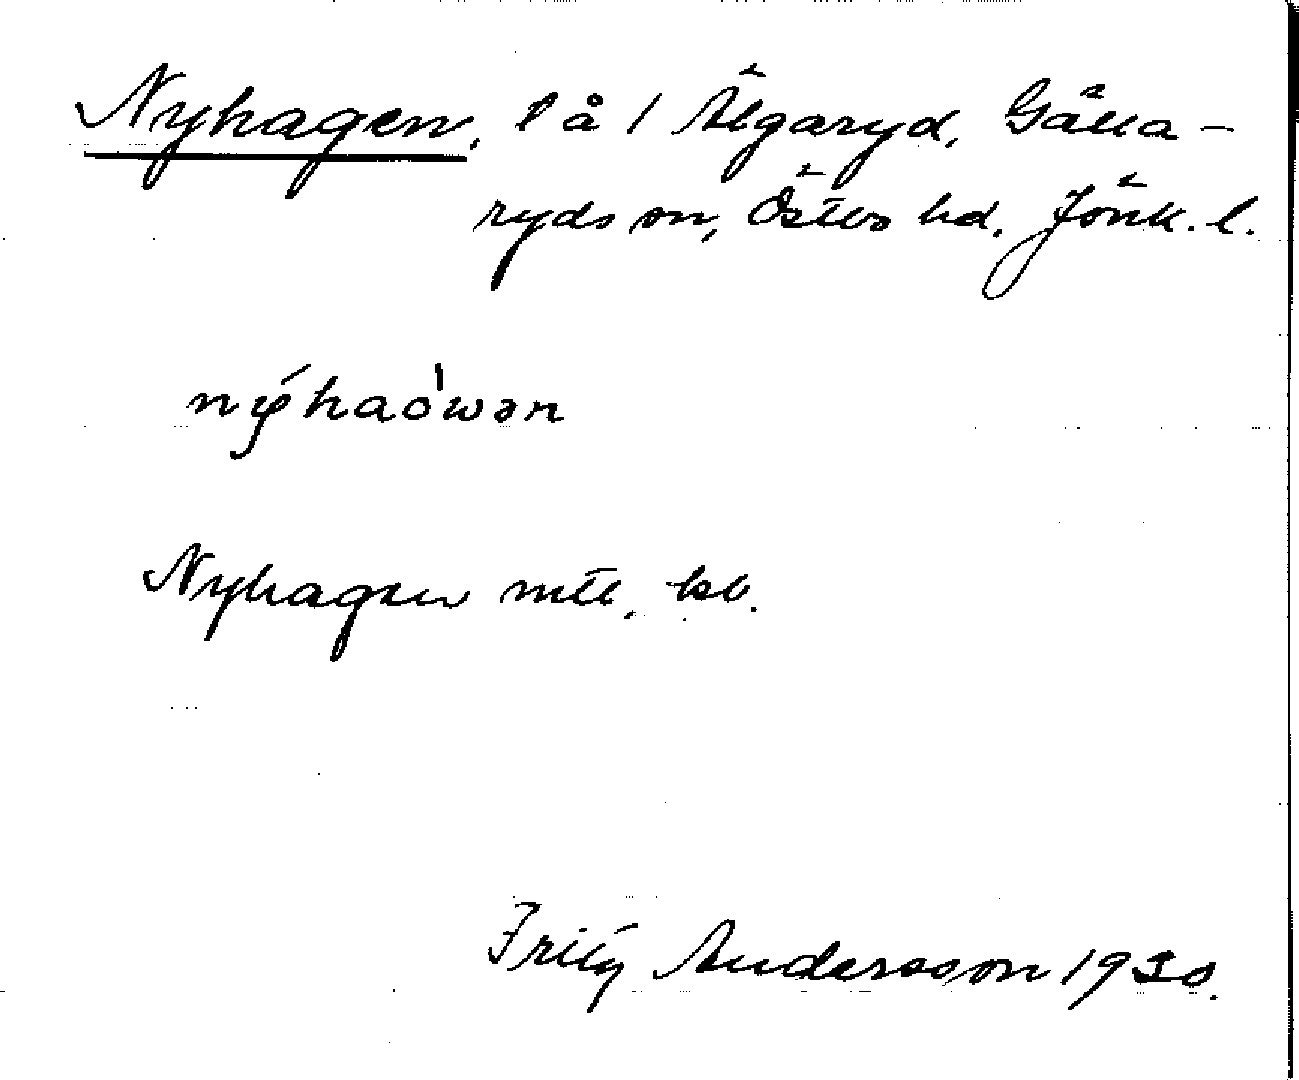 Nyhagen, l å 1 Älgaryd, Gälla-
ryds sn, Östbo hd. Jönk. l.
nýhaówən
Nyhagen mtl, kb.
Fritz Andersson 1930.